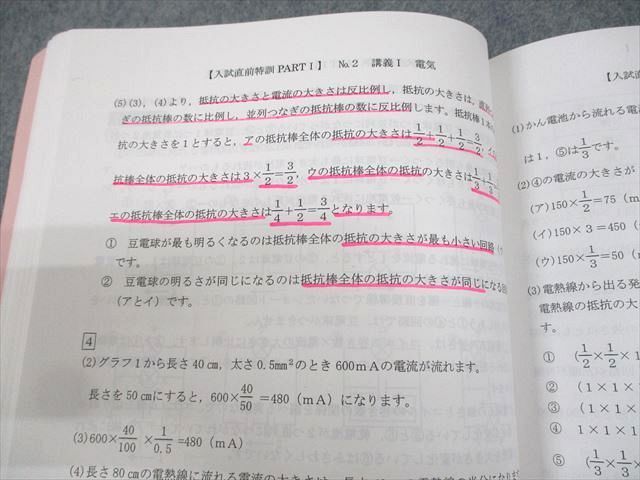 【入試直前特訓 PARTⅠ】 No.2 講義Ⅰ 電気
(5)(3),(4)より,抵抗の大きさと電流の大きさは反比例し,抵抗の大きさは,直列
ぎの抵抗棒の数に比例し,並列つなぎの抵抗棒の数に反比例します。抵抗棒1
抗の大きさを1とすると,アの抵抗棒全体の抵抗の大きさは1/2+1/2+1/2=3/2,
抗棒全体の抵抗の大きさは3×1/2=3/2,ウの抵抗棒全体の抵抗の大きさは1/3+1/3
エの抵抗棒全体の抵抗の大きさは1/4+1/2=3/4となります。
① 豆電球が最も明るくなるのは抵抗棒全体の抵抗の大きさが最も小さい回路
です。
② 豆電球の明るさが同じになるのは抵抗棒全体の抵抗の大きさが同じになる回
(アとイ)です。
4
(2)グラフ1から長さ40cm,太さ0.5mm²のとき600mAの電流が流れます。
長さを50cmにすると,600×40/50=480(mA)になります。
(3)600×40/100×1/0.5=480(mA)
(4)長さ80cmの電熱線に流れる電流の大きさは
【入試
(1)かん電池から流れる電
は1,⑤は1/3です。
(2)④の電流の大きさが
(ア)150×1/2=75(m
(イ)150×3=450(
(ウ)150×1/3=50(m
(3)電熱線から出る発
電熱線の抵抗の大
す。
① (1/2×1/2×1
② (1×1×
③ (1×1×
④ 1×1×1
⑤ (1/3×1/3×